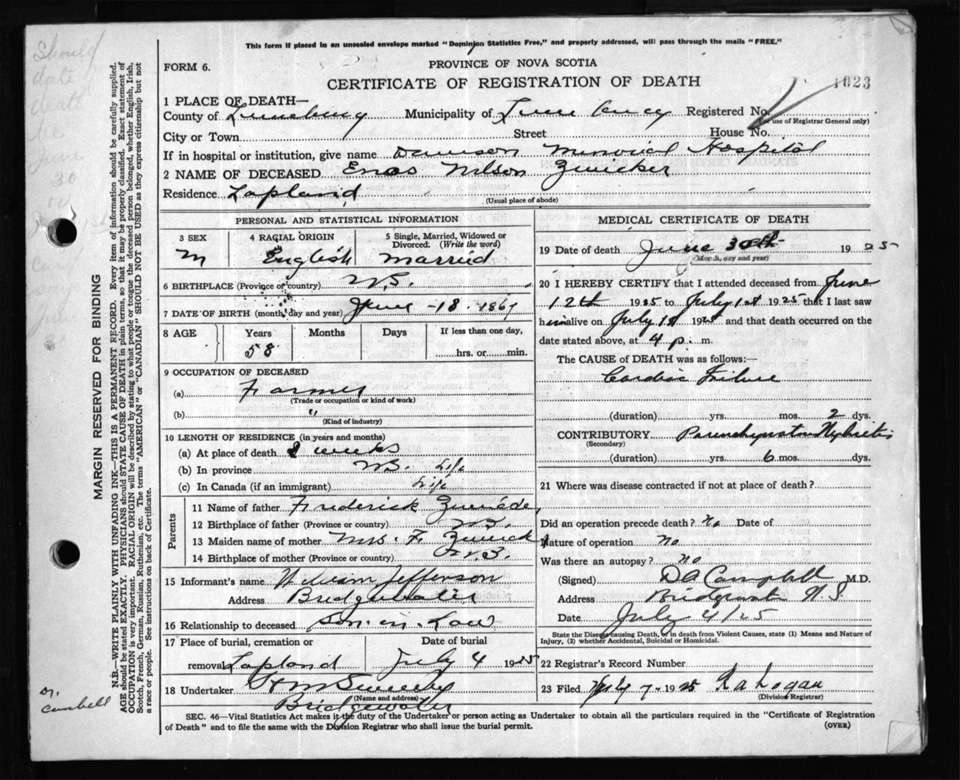 This form if placed in an unsealed envelope marked "Dominion Statistics Free," and properly addressed, will pass through the mails "FREE."
FORM 6.
PROVINCE OF NOVA SCOTIA
CERTIFICATE OF REGISTRATION OF DEATH
1023
1 PLACE OF DEATH—
County of Lunenburg Municipality of Registered No.
(For use of Registrar General only)
City or Town Street House No.
If in hospital or institution, give name Dawson Memorial Hospital
2 NAME OF DECEASED Enos Nelson Zwicker
Residence Lapland
(Usual place of abode)
PERSONAL AND STATISTICAL INFORMATION
3 SEX 4 RACIAL ORIGIN 5 Single, Married, Widowed or Divorced. (Write the word)
M English Married
6 BIRTHPLACE (Province or country) N.S.
7 DATE OF BIRTH (month, day and year) June - 18 - 1867
8 AGE Years Months Days If less than one day,
58 hrs. or min.
9 OCCUPATION OF DECEASED
(a) Farmer
(Trade or occupation or kind of work)
(b) "
(Kind of industry)
10 LENGTH OF RESIDENCE (in years and months)
(a) At place of death weeks
(b) In province N.S. Life
(c) In Canada (if an immigrant) Life
Parents
11 Name of father Frederick
12 Birthplace of father (Province or country) N.S.
13 Maiden name of mother Mrs. F. Zwicker
14 Birthplace of mother (Province or country) N.S.
15 Informant's name William Jefferson
Address Bridgewater
16 Relationship to deceased Son-in-Law
17 Place of burial, cremation or removal Date of burial
Lapland July 4 1925
18 Undertaker
(Name and address)
Bridgewater
MEDICAL CERTIFICATE OF DEATH
19 Date of death June 30th 1925
(Month, day and year)
20 I HEREBY CERTIFY that I attended deceased from June
12th 1925 to July 1st 1925 that I last saw
him alive on July 1st 1925 and that death occurred on the
date stated above, at 4 p. m.
The CAUSE of DEATH was as follows:
Cardiac Failure
(duration) yrs. mos. 2 dys.
CONTRIBUTORY Nephritis
(Secondary)
(duration) yrs. 6 mos. dys.
21 Where was disease contracted if not at place of death?
Did an operation precede death? No Date of
Nature of operation No
Was there an autopsy? No
(Signed) D A Campbell M.D.
Address Bridgewater N.S
Date July 4/25
State the Disease causing Death, or in death from Violent Causes, state (1) Means and Nature of Injury, (2) whether Accidental, Suicidal or Homicidal.
22 Registrar's Record Number
23 Filed July 7 - 1925 Logan
(Division Registrar)
SEC. 46—Vital Statistics Act makes it the duty of the Undertaker or person acting as Undertaker to obtain all the particulars required in the "Certificate of Registration
of Death" and to file the same with the Division Registrar who shall issue the burial permit. (OVER)
MARGIN RESERVED FOR BINDING
N.B.—WRITE PLAINLY WITH UNFADING INK—THIS IS A PERMANENT RECORD. Every item of information should be carefully supplied.
AGE should be stated EXACTLY. PHYSICIANS should STATE CAUSE OF DEATH in plain terms, so that it may be properly classified. Exact statement of
OCCUPATION is very important. RACIAL ORIGIN will be described by stating to what people or tongue the deceased person belonged, whether English, Irish,
Scotch, French, German, Russian, Ruthenian, etc. The terms "AMERICAN" or "CANADIAN" SHOULD NOT BE USED as they express citizenship but not
a race or people. See instructions on back of Certificate.
Should
date
death
be
June
30
or
Dr.